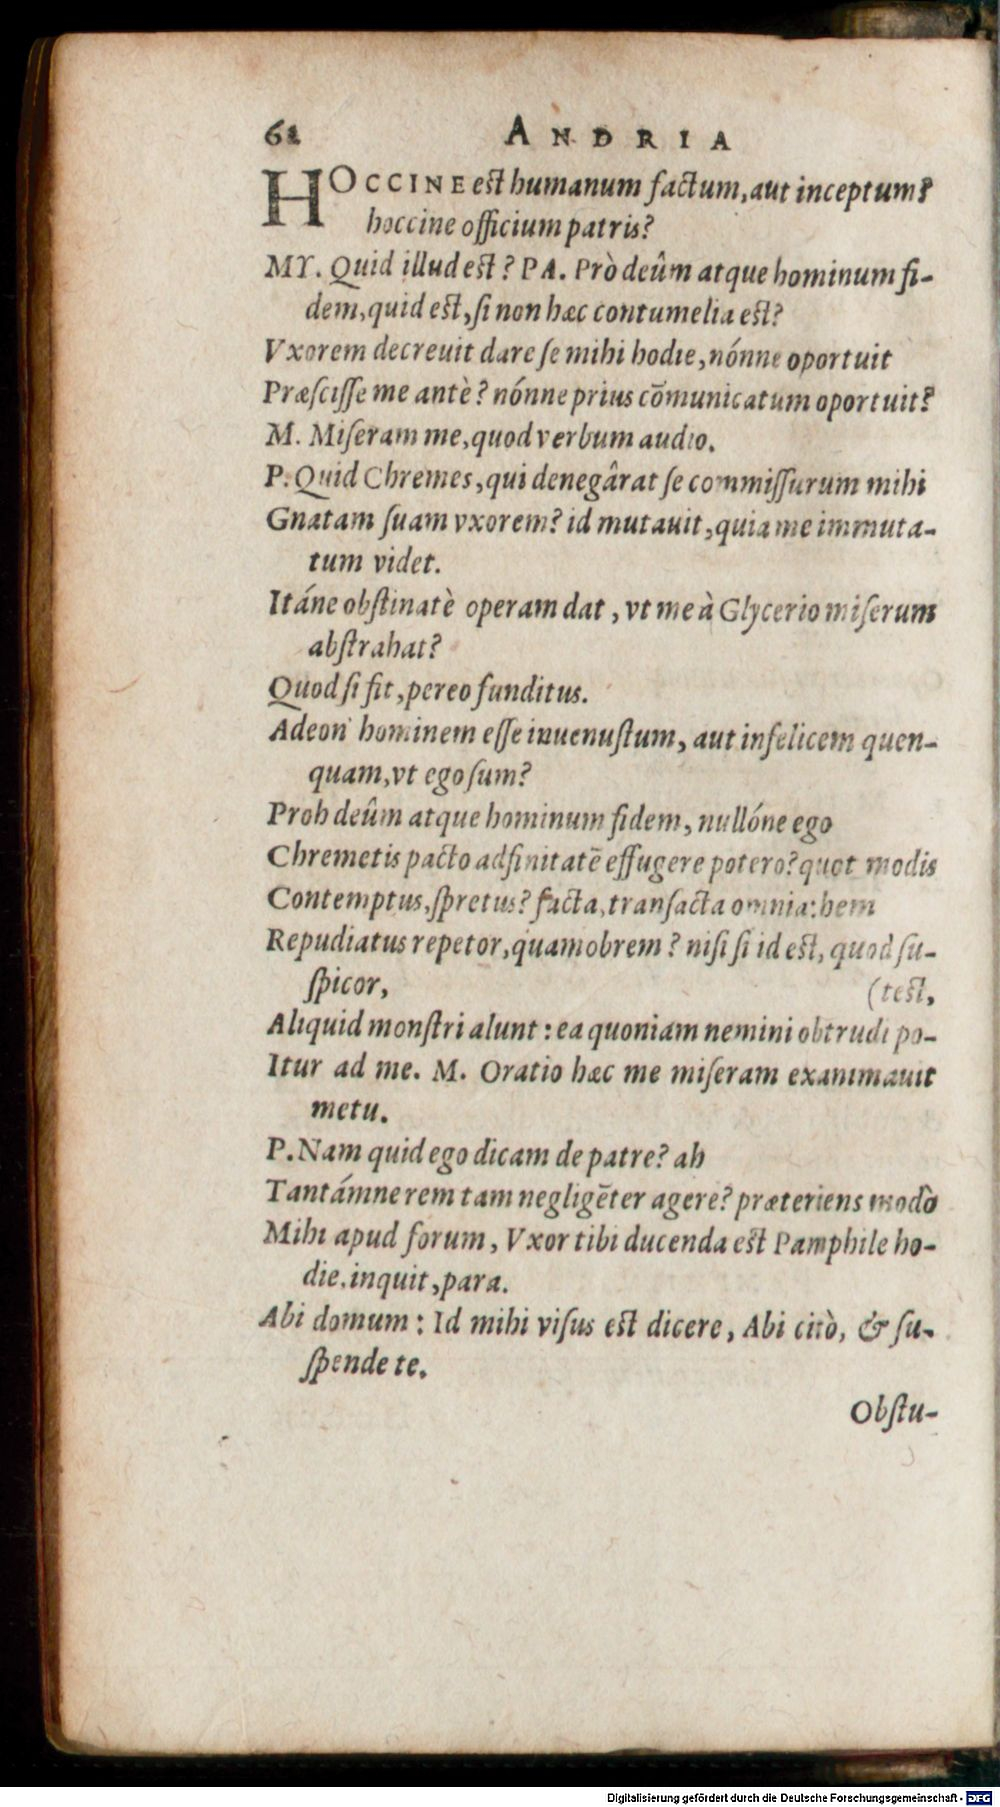 62 ANDRIA
HOCCINE est humanum factum, aut inceptum?
hoccine officium patris?
MY. Quid illud est? PA. Prò deûm atque hominum fi-
dem, quid est, si non hæc contumelia est?
Vxorem decreuit dare se mihi hodie, nónne oportuit
Præscisse me antè? nónne prius cōmunicatum oportuit?
M. Miseram me, quod verbum audio.
P. Quid Chremes, qui denegârat se commissurum mihi
Gnatam suam vxorem? id mutauit, quia me immuta-
tum videt.
Itáne obstinatè operam dat, vt me à Glycerio miserum
abstrahat?
Quod si fit, pereo funditus.
Adeon' hominem esse inuenustum, aut infelicem quen-
quam, vt ego sum?
Proh deûm atque hominum fidem, nullóne ego
Chremetis pacto adfinitatē effugere potero? quot modis
Contemptus, spretus? facta, transacta omnia: hem
Repudiatus repetor, quamobrem? nisi si id est, quod su-
spicor, (test,
Aliquid monstri alunt: ea quoniam nemini obtrudi po-
Itur ad me. M. Oratio hæc me miseram exanimauit
metu.
P. Nam quid ego dicam de patre? ah
Tantámne rem tam negligēter agere? præteriens modò
Mihi apud forum, Vxor tibi ducenda est Pamphile ho-
die, inquit, para.
Abi domum: Id mihi visus est dicere, Abi citò, & su-
spende te.
Obstu-
Digitalisierung gefördert durch die Deutsche Forschungsgemeinschaft - DFG